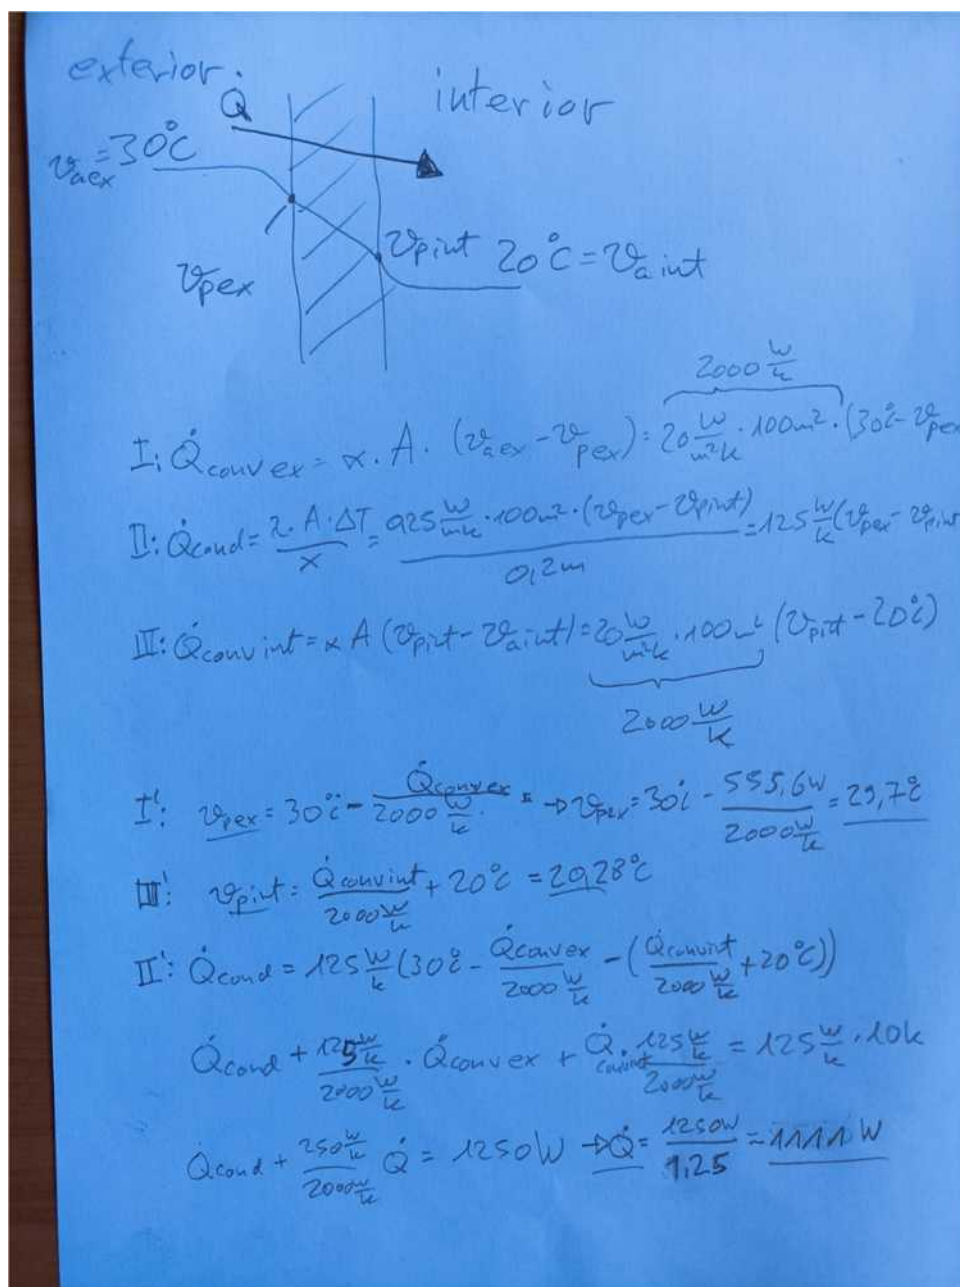 exterior
Q̇
interior
ϑaex = 30°C
ϑpex
ϑpint 20°C = ϑa int
2000 W/K
I: Q̇conv ex = α · A · (ϑaex - ϑpex) = 20 W/m²K · 100m² · (30°C - ϑpex
II: Q̇cond = λ · A · ΔT / x = 0,25 W/mK · 100m² · (ϑpex - ϑpint) / 0,2m = 125 W/K (ϑpex - ϑpint
III: Q̇conv int = α A (ϑpint - ϑaint) = 20 W/m²K · 100m² (ϑpint - 20°C)
2000 W/K
I': ϑpex = 30°C - Q̇convex / 2000 W/K = → ϑpex = 30°C - 555,6W / 2000 W/K = 29,7°C
III': ϑpint = Q̇convint / 2000 W/K + 20°C = 20,28°C
II': Q̇cond = 125 W/K (30°C - Q̇convex / 2000 W/K - (Q̇convint / 2000 W/K + 20°C))
Q̇cond + 125 W/K / 2000 W/K · Q̇convex + Q̇convint · 125 W/K / 2000 W/K = 125 W/K · 10K
Q̇cond + 250 W/K / 2000 W/K Q̇ = 1250W → Q̇ = 1250W / 1,25 = 1111 W